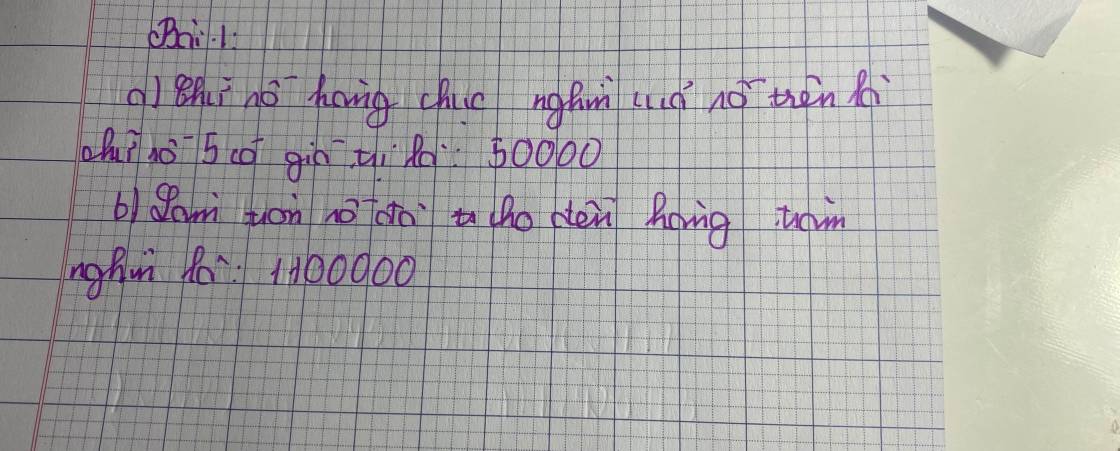 Bài 1:
a) Chữ số hàng chục nghìn của số trên là
chữ số 5 có giá trị là: 50000
b) Làm tròn số đã cho đến hàng trăm
nghìn là: 1100000